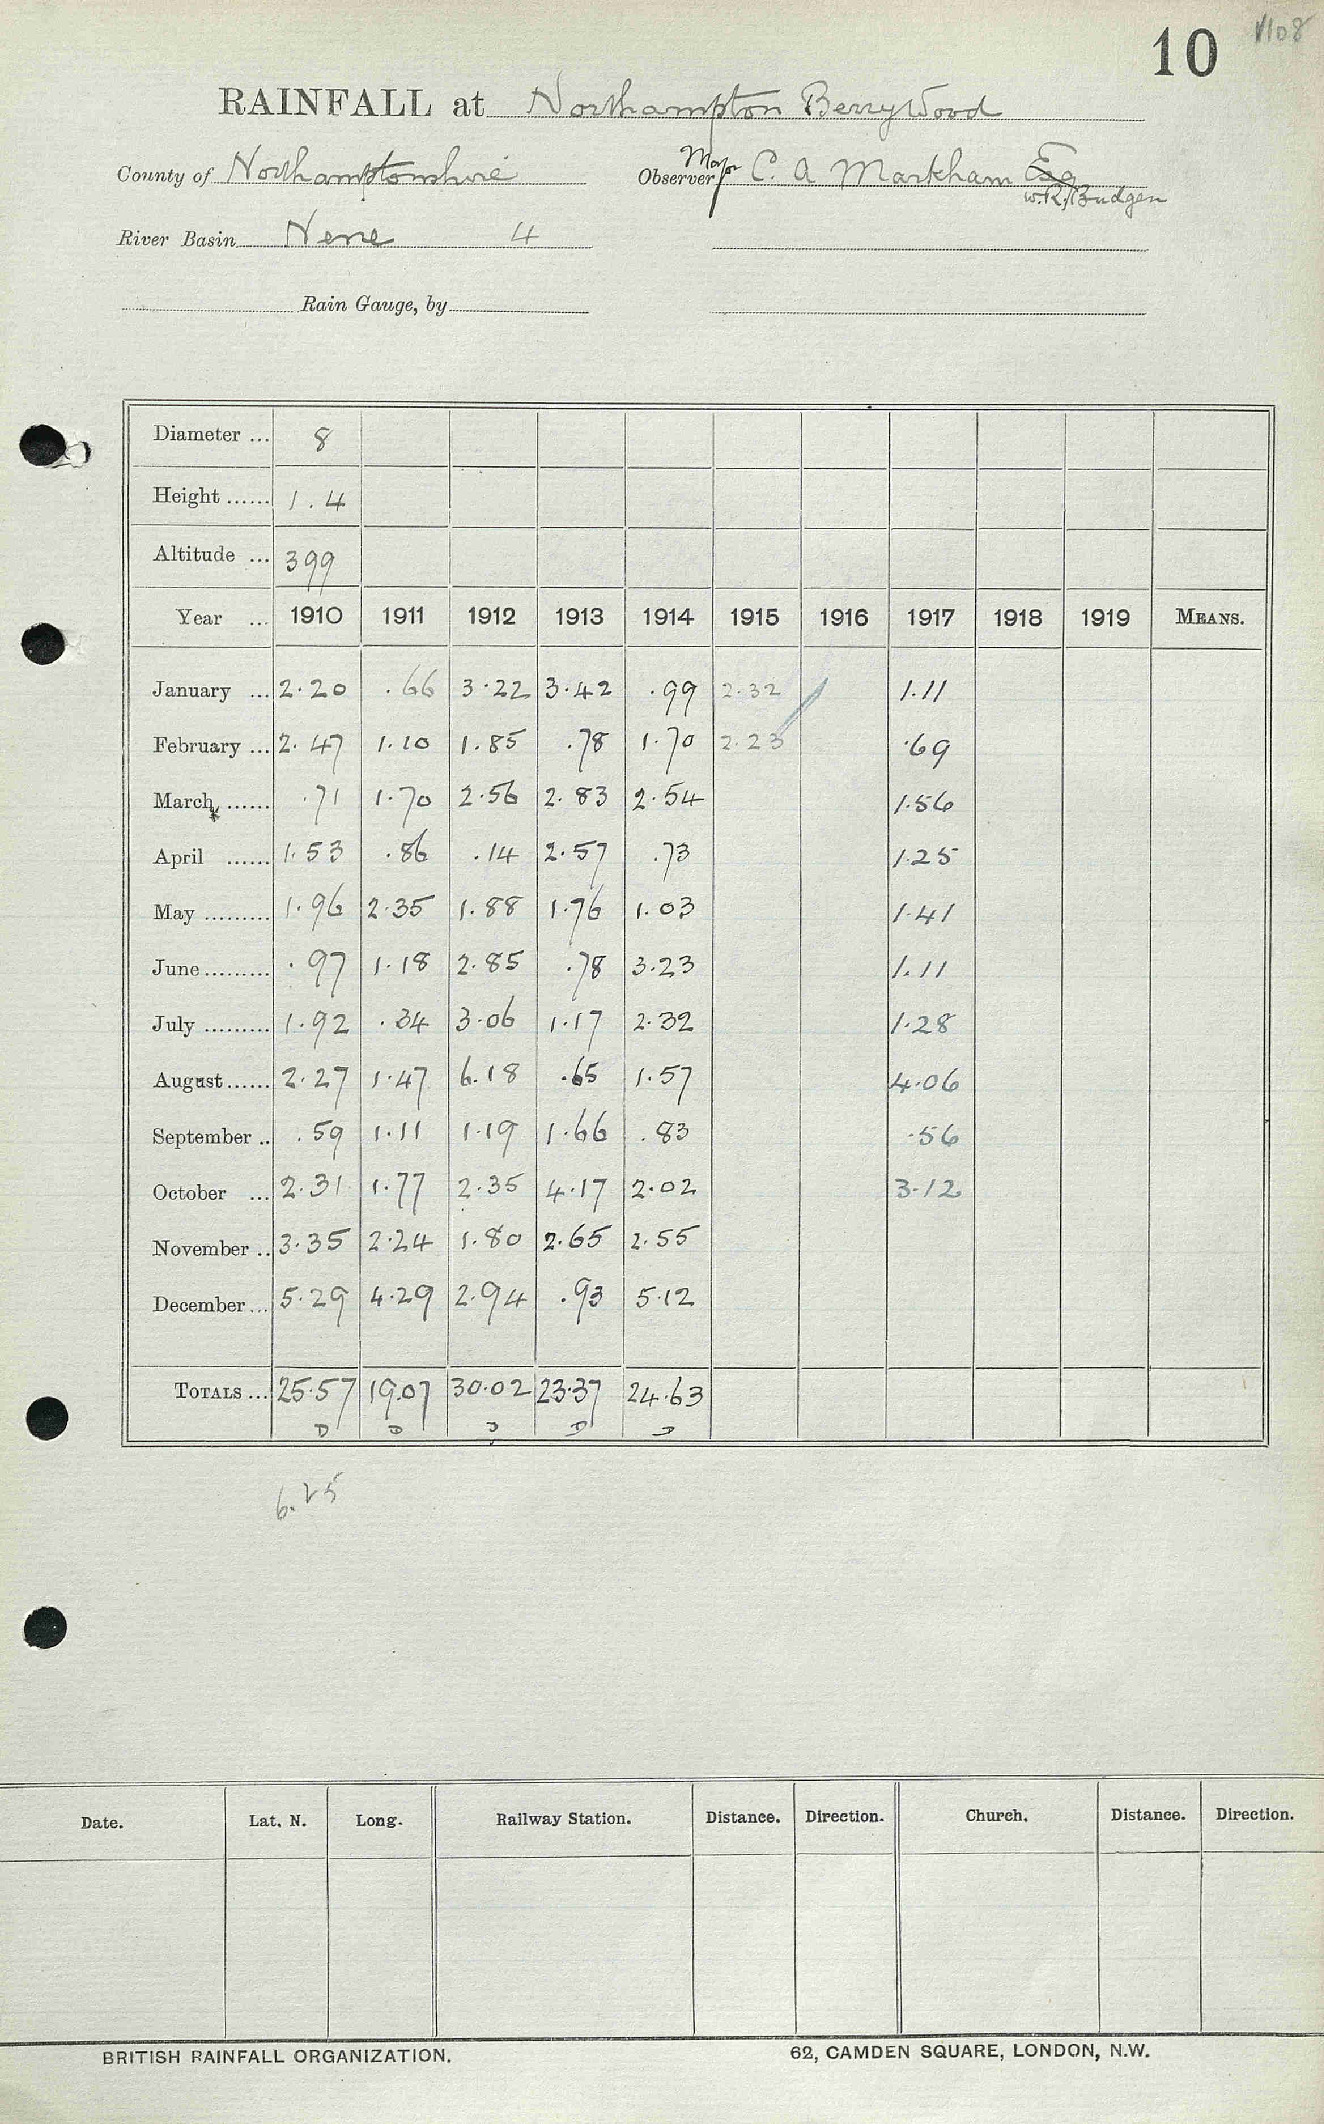 10
RAINFALL at Northampton Berrywood
County of Northamptonshire Observer Major C. A Markham Esq
W.R. Budgen
River Basin Nene 4
Rain Gauge, by
Diameter ... 8
Height ...... 1.4
Altitude ... 399
Year ... 1910 1911 1912 1913 1914 1915 1916 1917 1918 1919 MEANS.
January ... 2.20 .66 3.22 3.42 .99 2.32 1.11
February ... 2.47 1.10 1.85 .78 1.70 2.23 .69
March ...... .71 1.70 2.56 2.83 2.54 1.56
April ...... 1.53 .86 .14 2.57 .73 1.25
May ......... 1.96 2.35 1.88 1.76 1.03 1.41
June ......... .97 1.18 2.85 .78 3.23 1.11
July ......... 1.92 .34 3.06 1.17 2.32 1.28
August ...... 2.27 1.47 6.18 .65 1.57 4.06
September .. .59 1.11 1.19 1.66 .83 .56
October ... 2.31 1.77 2.35 4.17 2.02 3.12
November .. 3.35 2.24 1.80 2.65 2.55
December ... 5.29 4.29 2.94 .93 5.12
TOTALS ... 25.57 19.07 30.02 23.37 24.63
D D D D D
6.25
Date. Lat. N. Long. Railway Station. Distance. Direction. Church. Distance. Direction.
BRITISH RAINFALL ORGANIZATION. 62, CAMDEN SQUARE, LONDON, N.W.